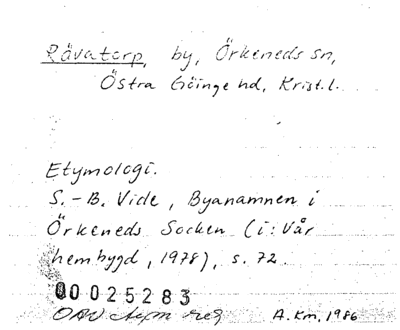 Rävatorp, by, Örkeneds sn,
Östra Göinge hd, Krist.l.
Etymologi.
S.-B. Vide, Byanamnen i
Örkeneds Socken (i: Vår
hembygd, 1978), s. 72.
00025283
A. Km. 1986